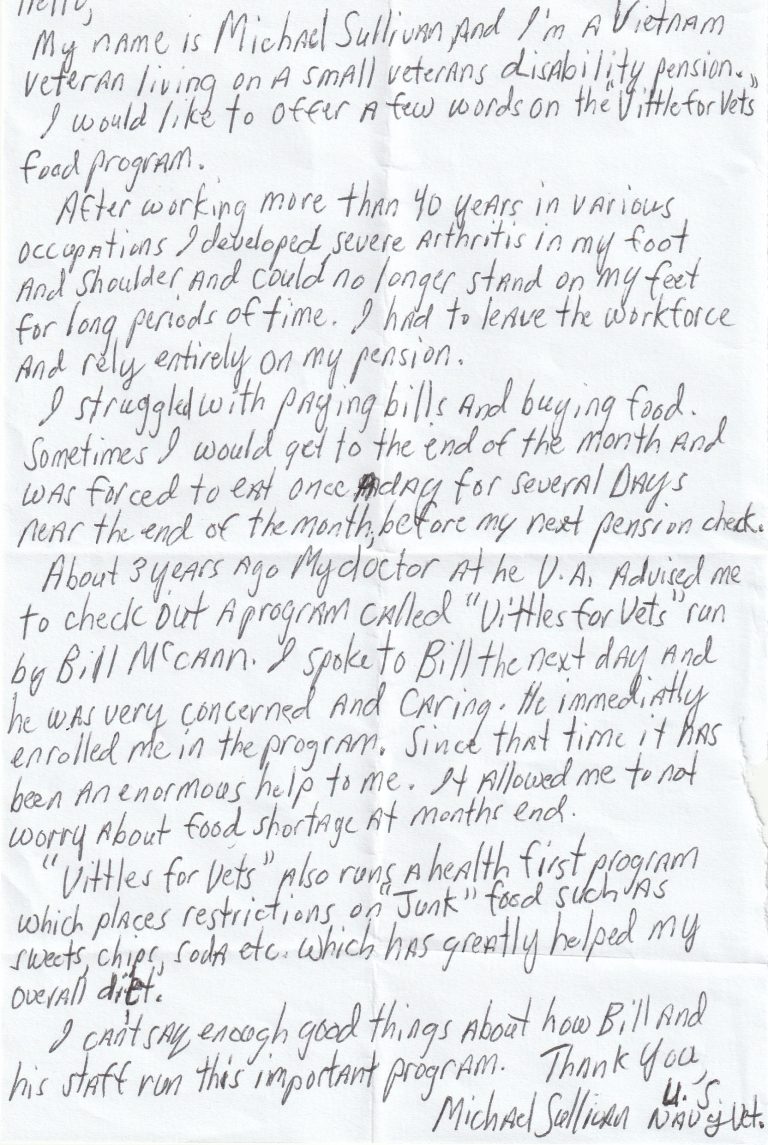 Hello,
My name is Michael Sullivan and I'm a Vietnam
veteran living on a small veterans disability pension.
I would like to offer a few words on the "Vittle for Vets"
food program.
After working more than 40 years in various
occupations I developed severe arthritis in my foot
and shoulder and could no longer stand on my feet
for long periods of time. I had to leave the workforce
and rely entirely on my pension.
I struggled with paying bills and buying food.
Sometimes I would get to the end of the month and
was forced to eat once a day for several Days
near the end of the month, before my next pension check.
About 3 years ago My doctor at he V.A. advised me
to check out a program called "Vittles for Vets" run
by Bill McCann. I spoke to Bill the next day and
he was very concerned and caring. He immediatly
enrolled me in the program. Since that time it has
been an enormous help to me. It allowed me to not
worry about food shortage at months end.
"Vittles for Vets" also runs a health first program
which places restrictions on "Junk" food such as
sweets, chips, soda etc. which has greatly helped my
overall diet.
I can't say enough good things about how Bill and
his staff run this important program. Thank You,
Michael Sullivan U.S. Navy Vet.